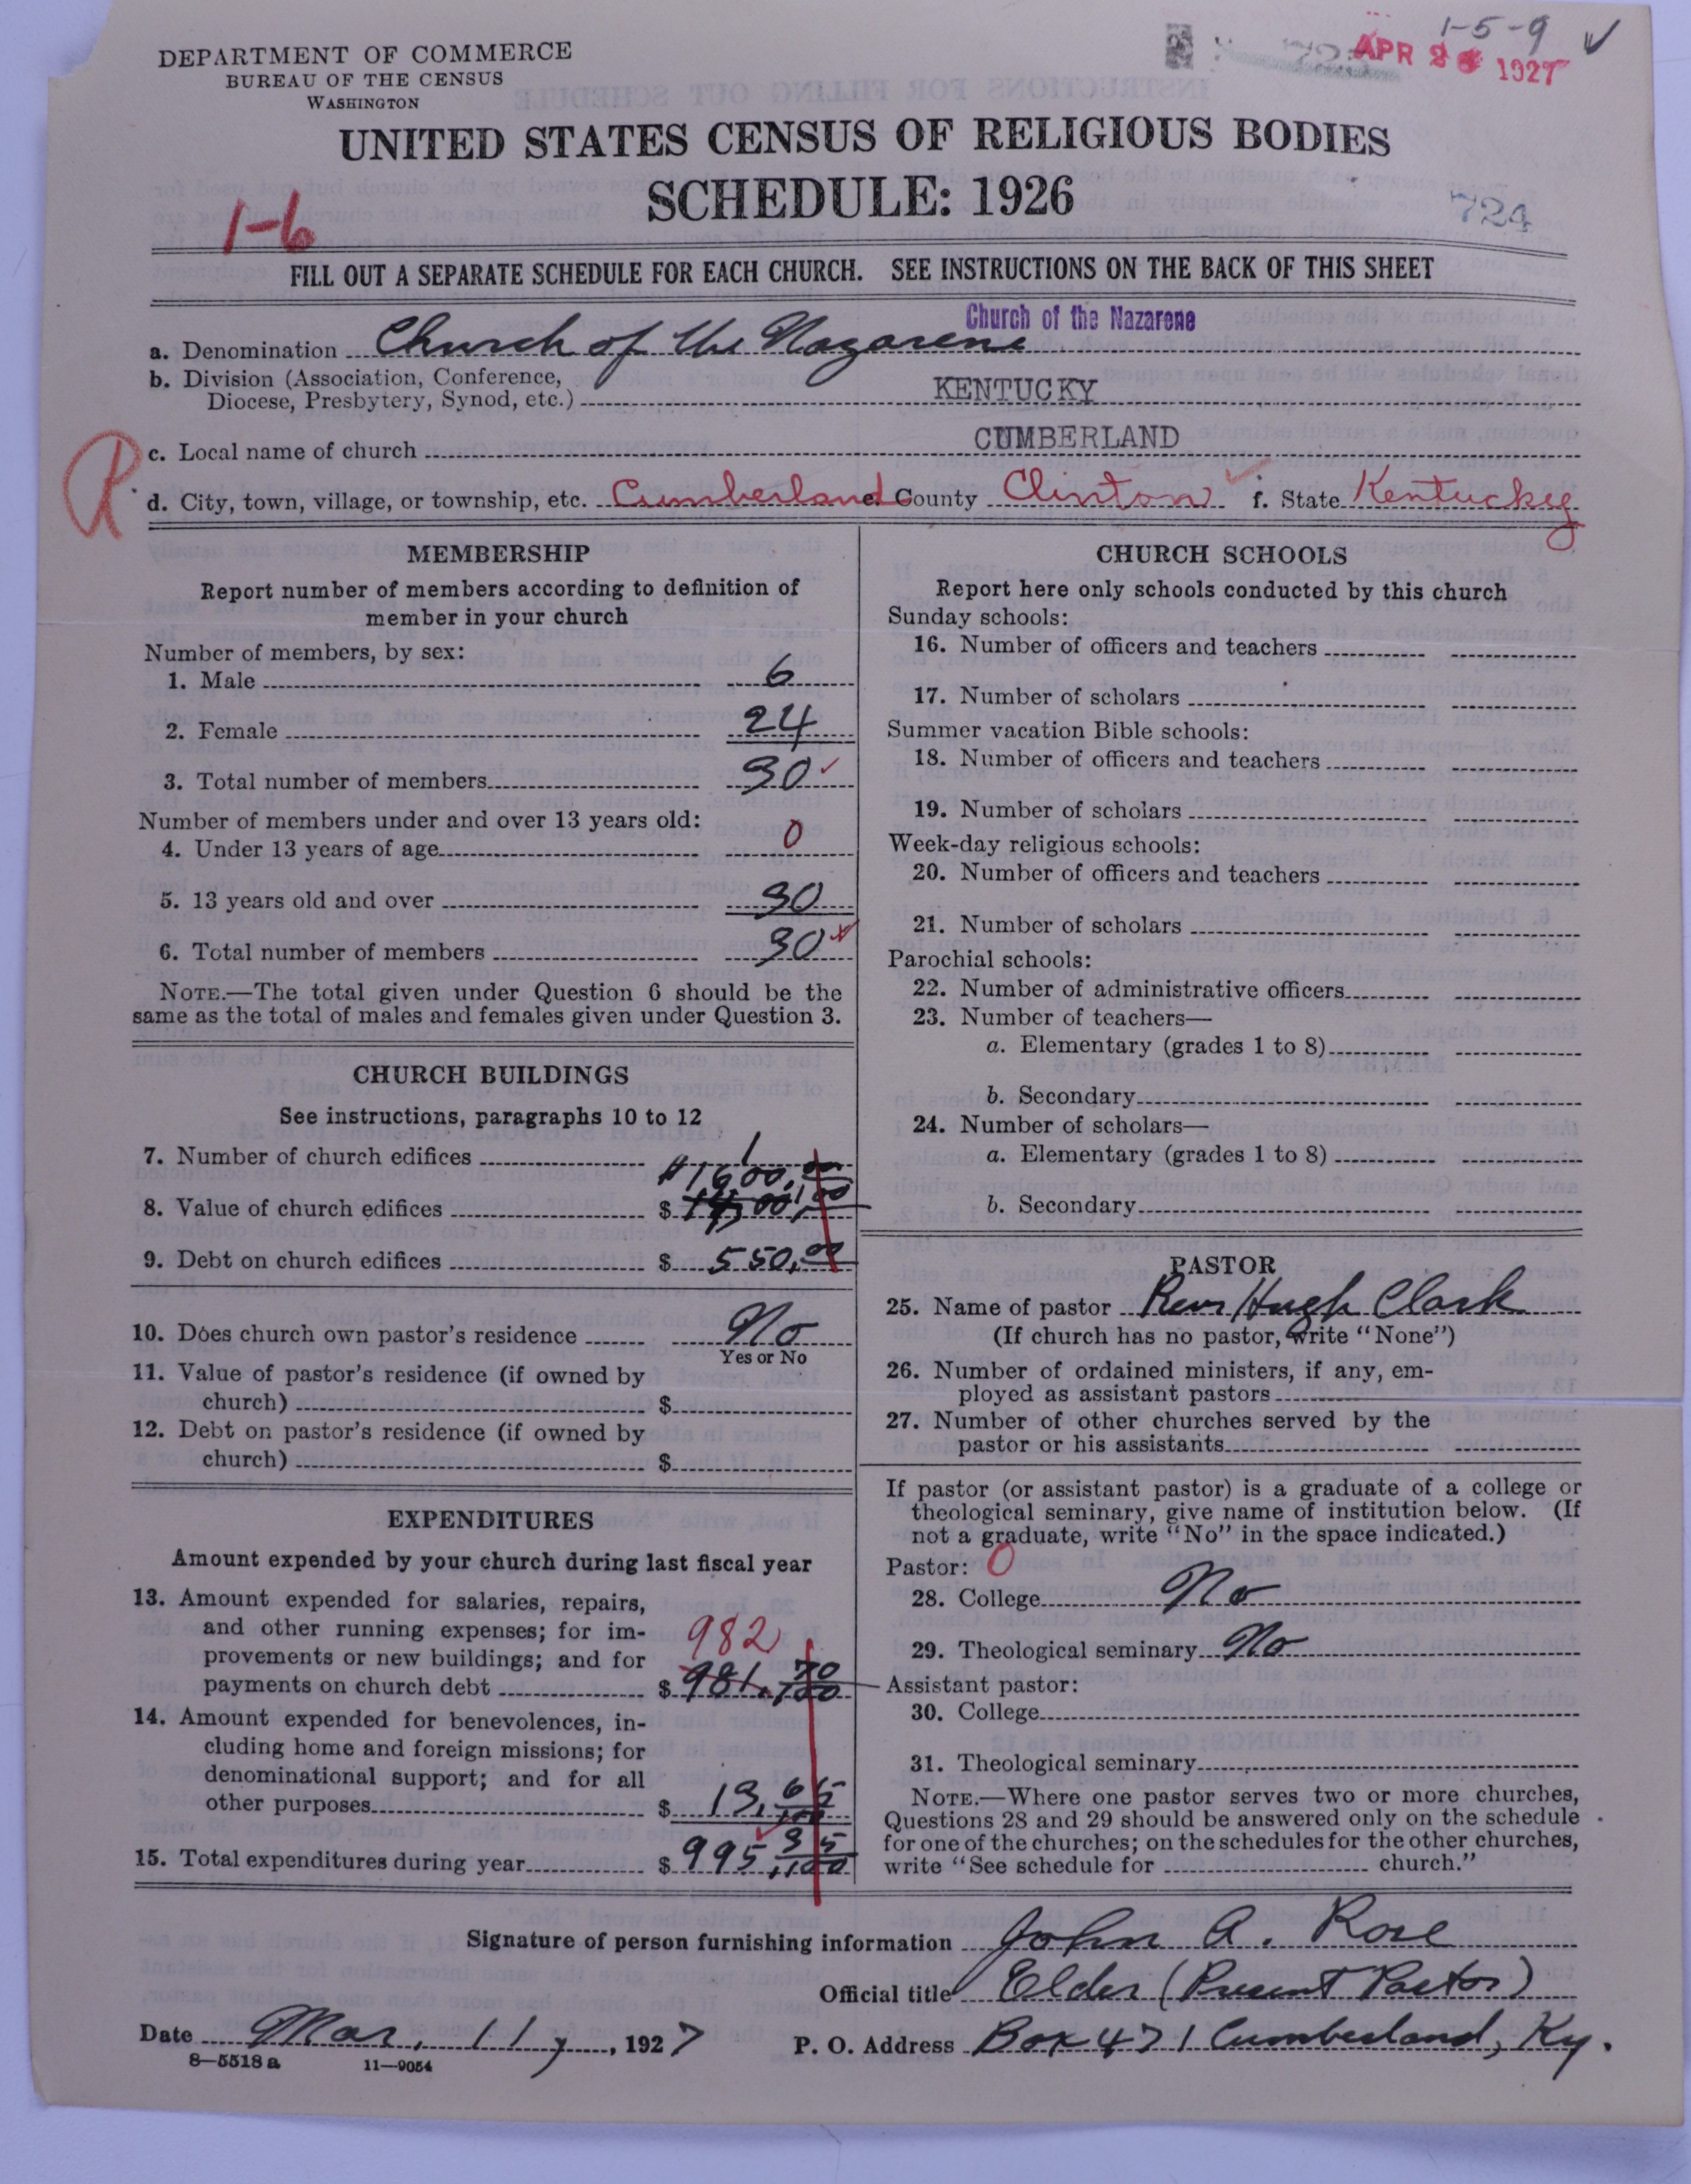 1-5-9
APR 26 1927
DEPARTMENT OF COMMERCE
BUREAU OF THE CENSUS
WASHINGTON
UNITED STATES CENSUS OF RELIGIOUS BODIES
SCHEDULE: 1926
1-6
724
FILL OUT A SEPARATE SCHEDULE FOR EACH CHURCH. SEE INSTRUCTIONS ON THE BACK OF THIS SHEET
Church of the Nazarene
a. Denomination Church of the Nazarene
b. Division (Association, Conference,
Diocese, Presbytery, Synod, etc.) KENTUCKY
c. Local name of church CUMBERLAND
R
d. City, town, village, or township, etc. Cumberland e. County Clinton f. State Kentucky
MEMBERSHIP
Report number of members according to definition of
member in your church
Number of members, by sex:
1. Male 6
2. Female 24
3. Total number of members 30
Number of members under and over 13 years old:
4. Under 13 years of age 0
5. 13 years old and over 30
6. Total number of members 30
NOTE.—The total given under Question 6 should be the
same as the total of males and females given under Question 3.
CHURCH BUILDINGS
See instructions, paragraphs 10 to 12
7. Number of church edifices 1
$1600.00
8. Value of church edifices $
9. Debt on church edifices $ 550.00
10. Does church own pastor's residence No
Yes or No
11. Value of pastor's residence (if owned by
church) $
12. Debt on pastor's residence (if owned by
church) $
EXPENDITURES
Amount expended by your church during last fiscal year
13. Amount expended for salaries, repairs,
and other running expenses; for im-
982
provements or new buildings; and for
payments on church debt $ 981.70/100
14. Amount expended for benevolences, in-
cluding home and foreign missions; for
denominational support; and for all
other purposes $ 13.65/100
15. Total expenditures during year $ 995.35/100
CHURCH SCHOOLS
Report here only schools conducted by this church
Sunday schools:
16. Number of officers and teachers
17. Number of scholars
Summer vacation Bible schools:
18. Number of officers and teachers
19. Number of scholars
Week-day religious schools:
20. Number of officers and teachers
21. Number of scholars
Parochial schools:
22. Number of administrative officers
23. Number of teachers—
a. Elementary (grades 1 to 8)
b. Secondary
24. Number of scholars—
a. Elementary (grades 1 to 8)
b. Secondary
PASTOR
25. Name of pastor Rev Hugh Clark
(If church has no pastor, write "None")
26. Number of ordained ministers, if any, em-
ployed as assistant pastors
27. Number of other churches served by the
pastor or his assistants
If pastor (or assistant pastor) is a graduate of a college or
theological seminary, give name of institution below. (If
not a graduate, write "No" in the space indicated.)
Pastor: 0
28. College No
29. Theological seminary No
Assistant pastor:
30. College
31. Theological seminary
NOTE.—Where one pastor serves two or more churches,
Questions 28 and 29 should be answered only on the schedule
for one of the churches; on the schedules for the other churches,
write "See schedule for church."
Signature of person furnishing information John A. Rose
Official title Elder (Present Pastor)
Date Mar, 11, 1927 P. O. Address Box 471 Cumberland, Ky.
8-5518 a 11-9054